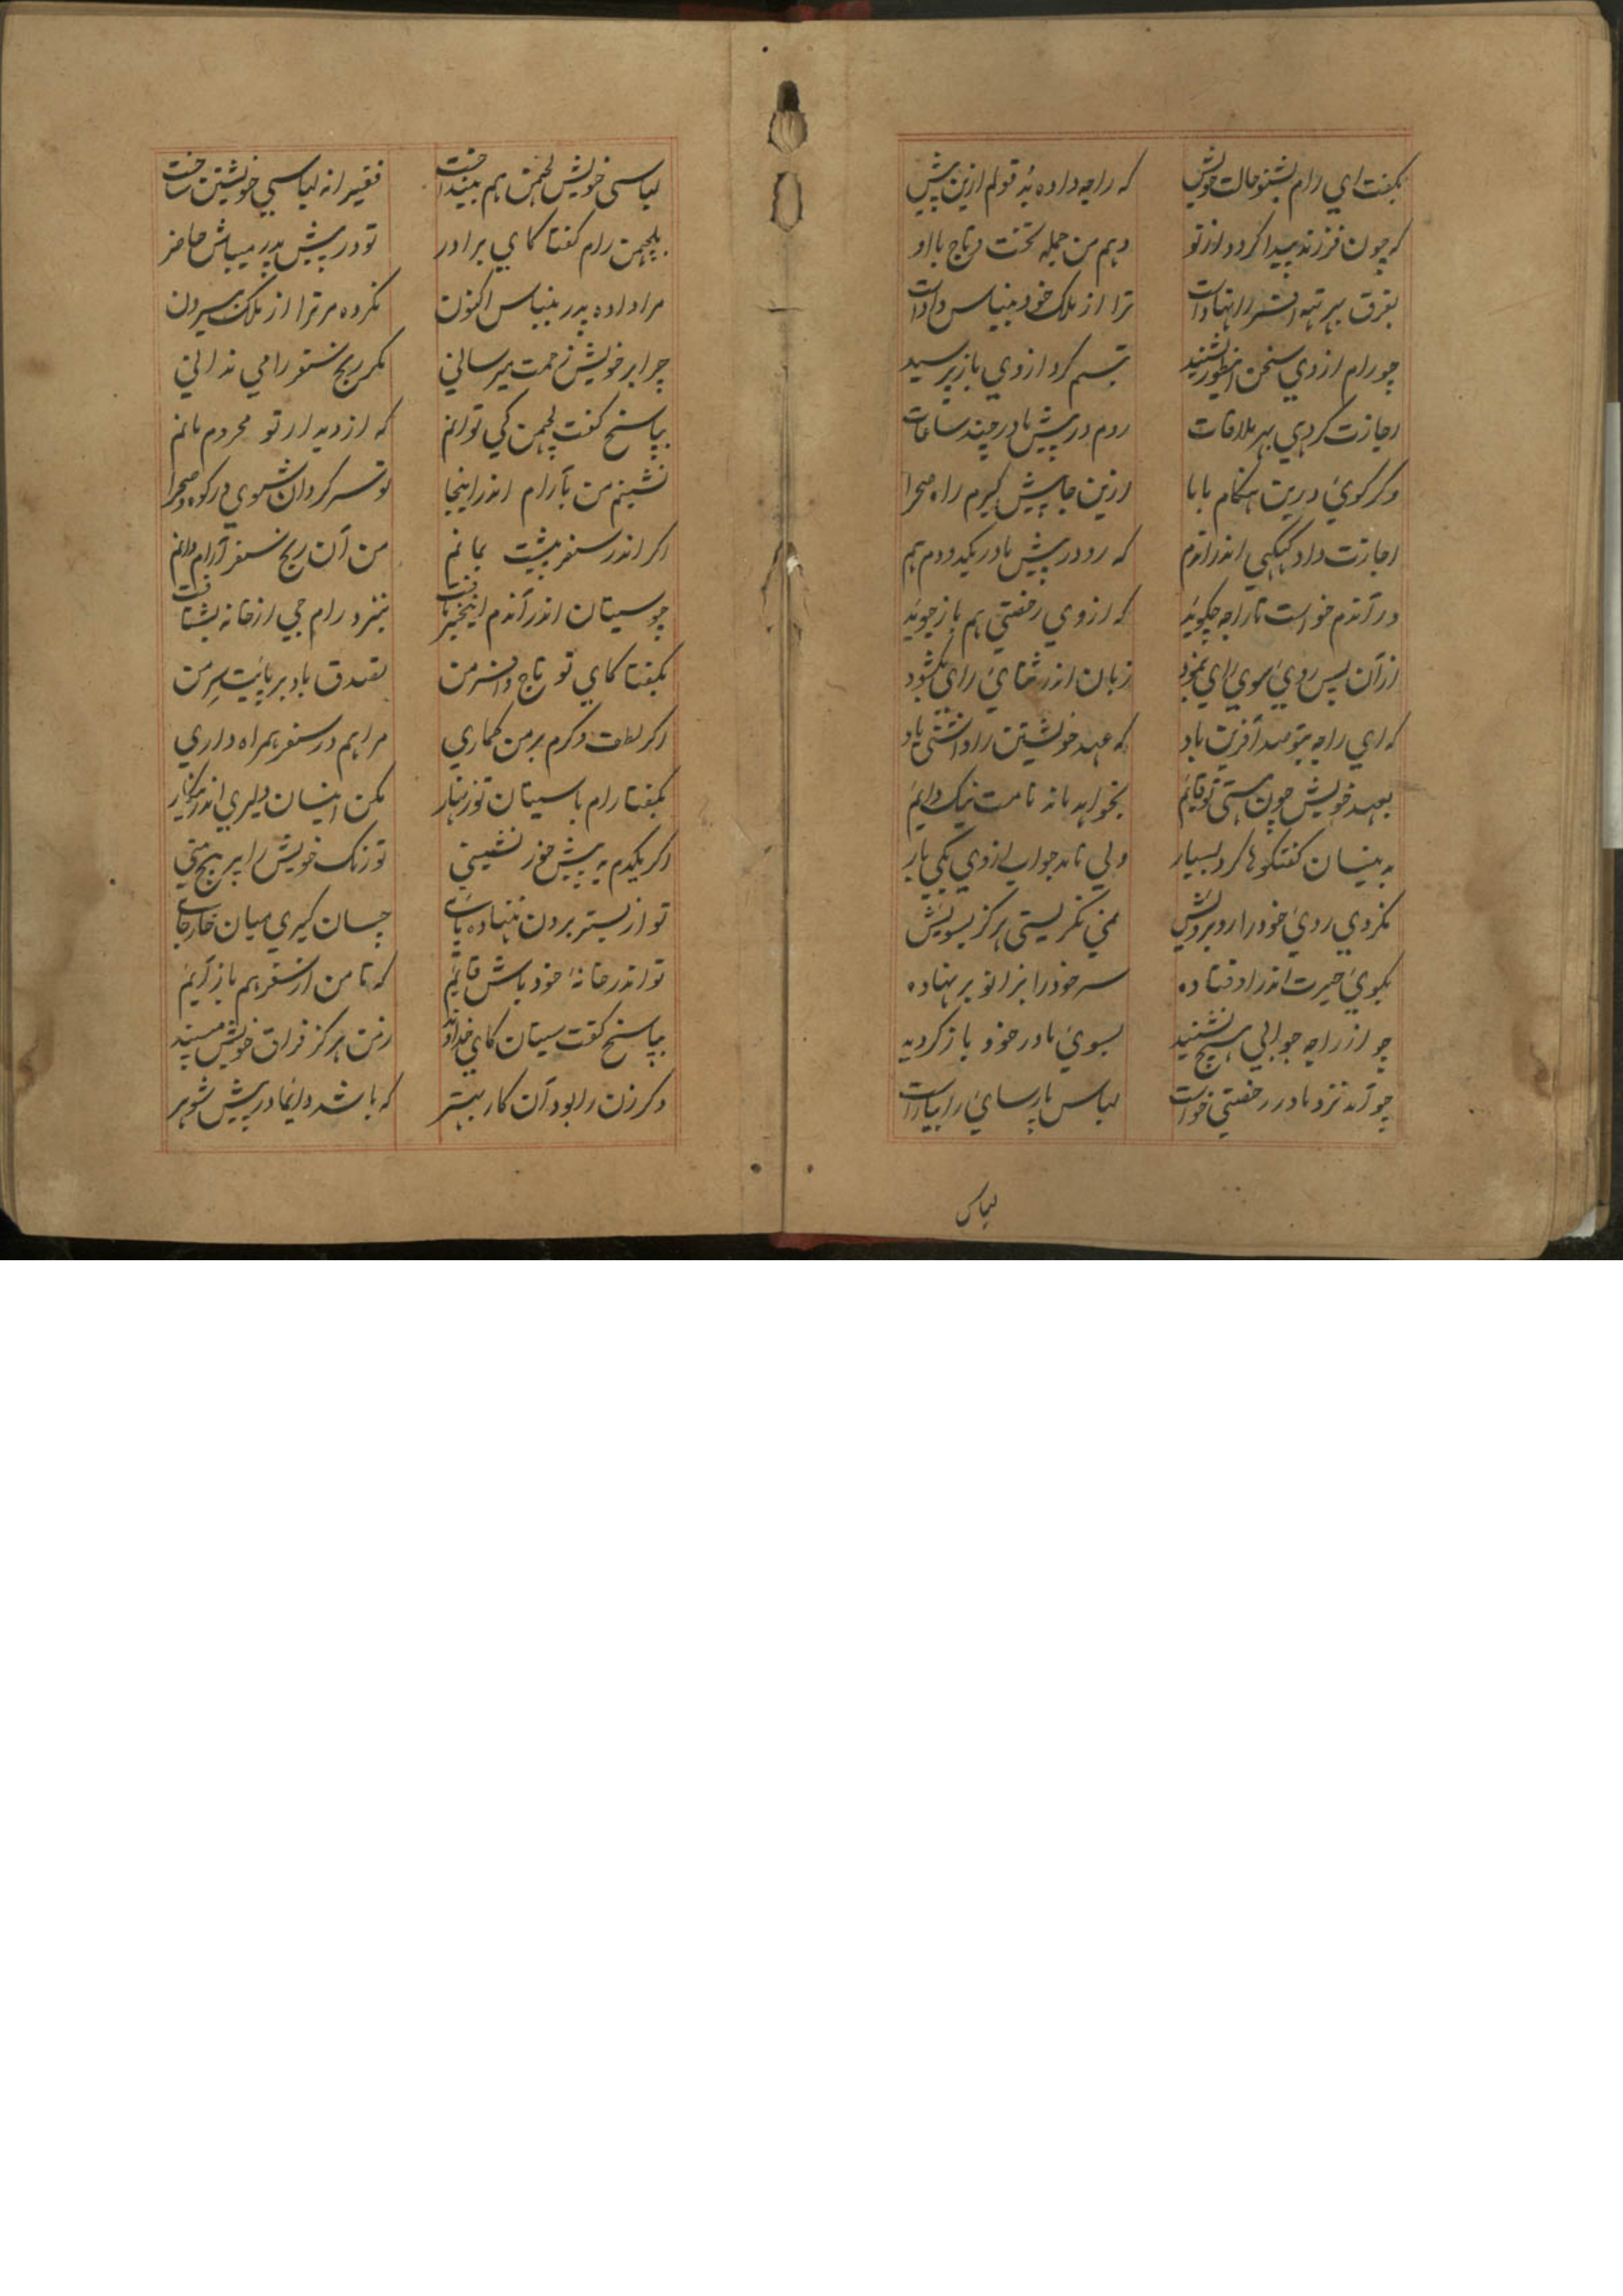 بگفت ای رام بشنو حالت خویش که راجه داده بُد قولم ازین پیش
که چون فرزند پیدا گردد از تو دهم من جمله تخت و تاج با او
بفرق بهرتهه افسر را نهادست ترا از ملک خود بنباس دادست
چو رام از وی سخن اینطور بشنید تبسم کرد از وی باز پرسید
اجازت گر دهی بهر ملاقات روم در پیش مادر چند ساعات
وگر گوئی درین هنگام بابا ازین جا پیش گیرم راه صحرا
اجازت داد کیکیی اندران دم که رو در پیش مادر یکدو دم هم
در آندم خواست تا راجه چگوید که از وی رخصتی هم باز جوید
از آن پس روی سوی رای بنمود زبان اندر ثنای رای بگشود
که ای راجه بتو صد آفرین باد که عهد خویشتن را داشتی یاد
بعهد خویش چون هستی تو قایم بخواهد ماند نامت نیک دایم
بدینسان گفتگوها کرد بسیار ولی نامد جواب از وی یکی بار
نکردی روی خود را روبرویش نمی نگریستی هرگز بسویش
بکوی حیرت اندر اوفتاده سر خود را بزانو بر نهاده
چو از راجه جوابی هیچ نشنید بسوی مادر خود باز گردید
چو آمد نزد مادر رخصتی خواست لباس پارسائی را بیاراست
لباس
لباسی خویش لچمن هم بینداخت فقیرانه لباسی خویشتن ساخت
بلچمن رام گفتا کای برادر تو در پیش پدر میباش حاضر
مرا داده پدر بنباس اکنون نکرده مر ترا از ملک بیرون
چرا بر خویش زحمت میرسانی مگر رنج سفر را می ندانی
بپاسخ گفت لچمن کی توانم که از دیدار تو محروم مانم
نشینم من بآرام اندر اینجا تو سرگردان شوی در کوه و صحرا
اگر اندر سفر پیشت بمانم من آن رنج سفر آرام دانم
چو سیتان اندر آندم این خبر یافت بنزد رام جی از خانه بشتافت
بگفتا کای تو تاج و افسر من تصدق باد بر پایت سر من
اگر لطف و کرم بر من گماری مرا هم در سفر همراه داری
بگفتا رام با سیتان تو زنهار مکن اینسان دلیری اندرین کار
اگر یکدم به پیش خور نشینی تو رنگ خویش را پر هیچ بینی
تو از بستر برون ننهاده پای چسان گیری میان خار جای
تو اندر خانهٔ خود باش قایم که تا من از سفر هم باز آیم
بپاسخ گفت سیتان کای خداوند ز من هرگز فراق خویش مپسند
دگر زن را بود آن کار بهتر که باشد دایما در پیش شوهر